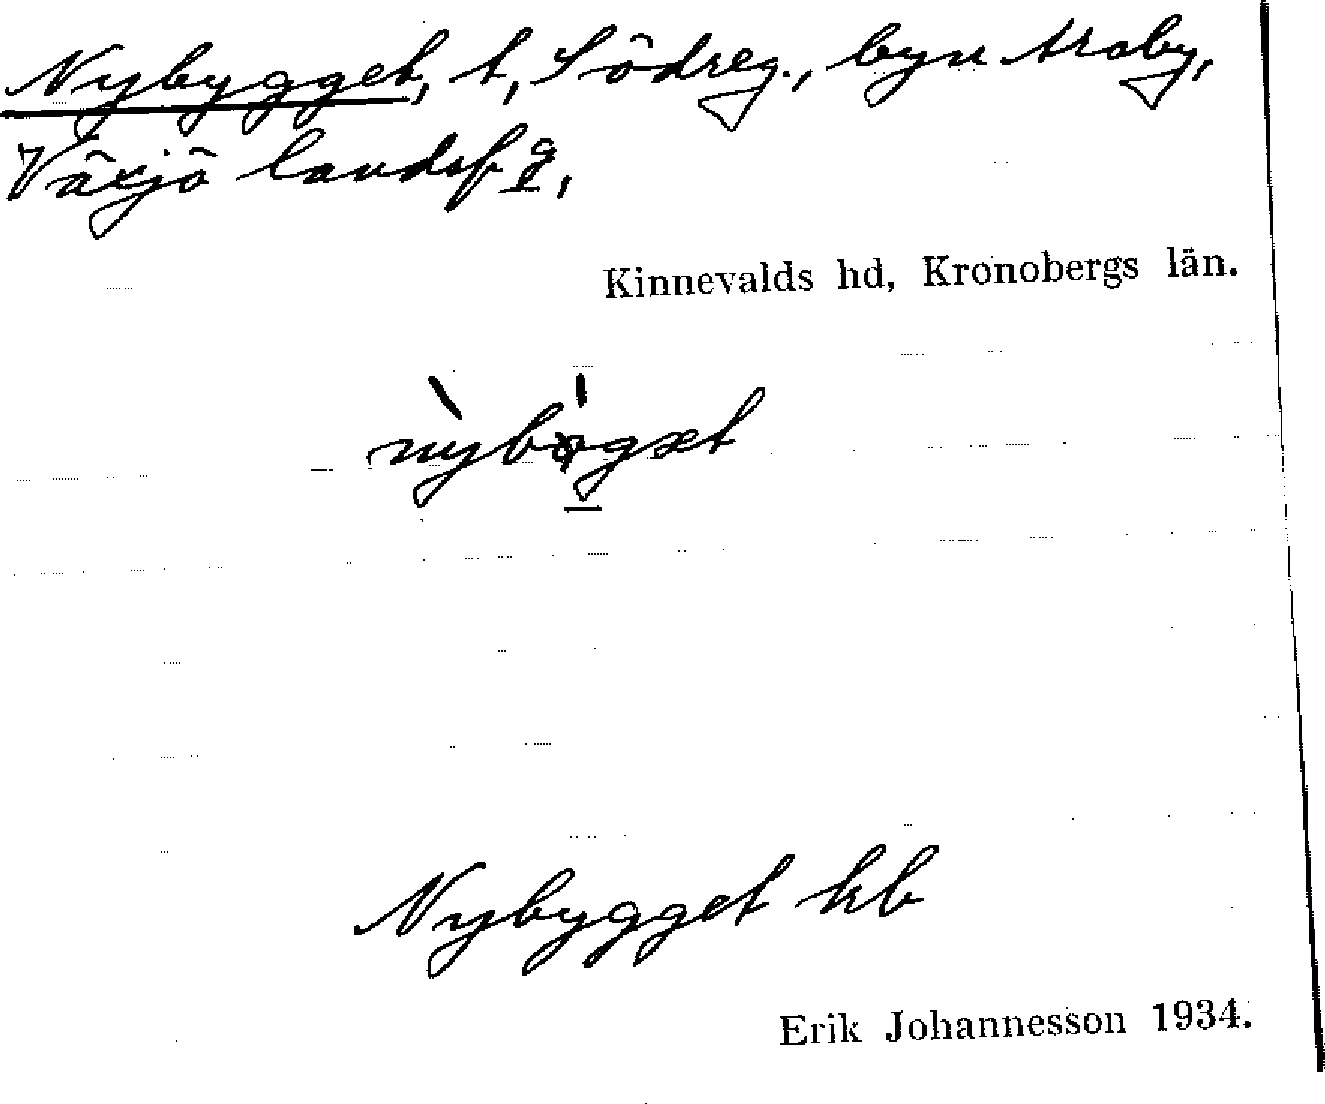 Nybygget, t, Södreg., byn Araby,
Växjö landsf g,
Kinnevalds hd, Kronobergs län.
Nybygget kb
Erik Johannesson 1934.